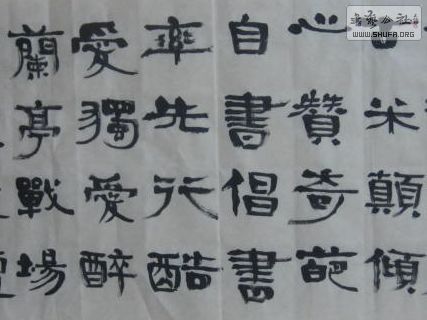 米顛傾
心贊奇葩
自書倡書
率先行酷
愛獨愛醉
蘭亭戰場
WWW.SHUFA.ORG